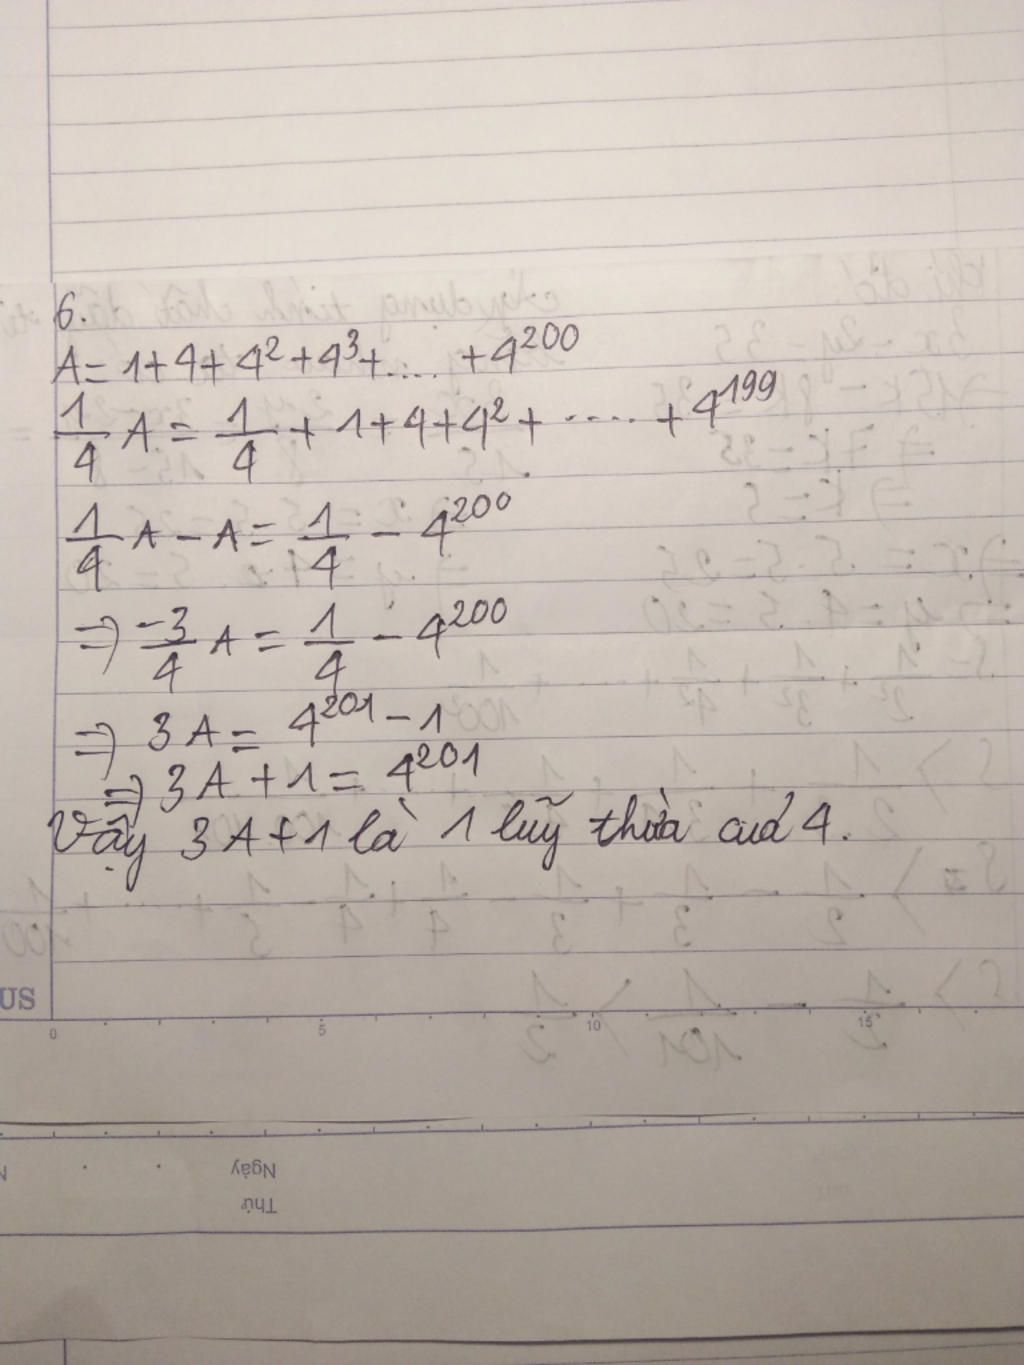 6.
A = 1 + 4 + 4² + 4³ + ..... + 4²⁰⁰
1/4 A = 1/4 + 1 + 4 + 4² + ..... + 4¹⁹⁹
1/4 A - A = 1/4 - 4²⁰⁰
⇒ -3/4 A = 1/4 - 4²⁰⁰
⇒ 3A = 4²⁰¹ - 1
⇒ 3A + 1 = 4²⁰¹
Vậy 3A + 1 là 1 luỹ thừa của 4.
US
0 5 10 15
Ngày
Thứ